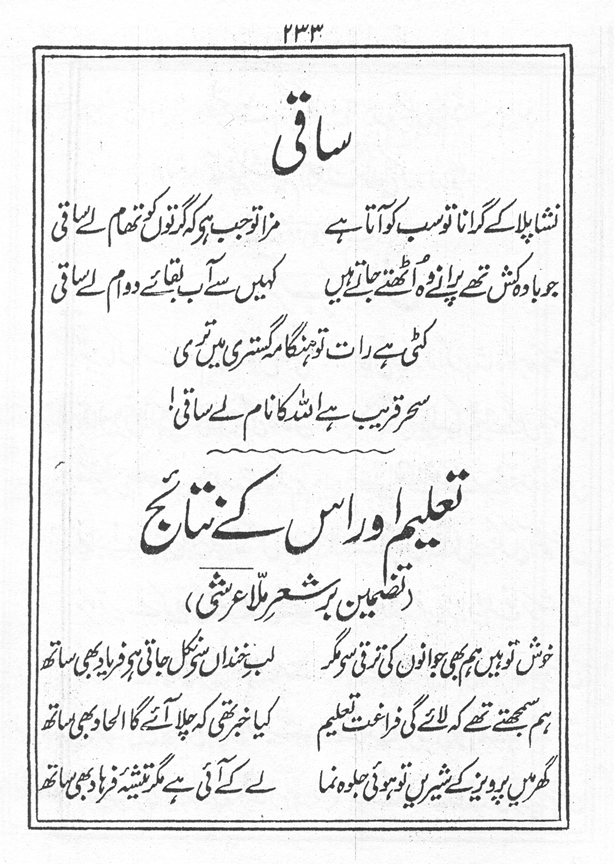 ۲۳۳
ساقی
نشا پلا کے گرانا تو سب کو آتا ہے مزا تو جب ہو کہ گرتوں کو تھام لے ساقی
جو بادہ کش تھے پرانے وہ اُٹھتے جاتے ہیں کہیں سے آبِ بقائے دوام لے ساقی
کٹی ہے رات تو ہنگامہ گستری میں تری
سحر قریب ہے اللہ کا نام لے ساقی!
تعلیم اور اس کے نتائج
(تضمین بر شعر ملّا عرشی)
خوش تو ہیں ہم بھی جوانوں کی ترقی سے مگر لبِ خنداں سے نکل جاتی ہے فریاد بھی ساتھ
ہم سمجھتے تھے کہ لائے گی فراغت تعلیم کیا خبر تھی کہ چلا آئے گا الحاد بھی ساتھ
گھر میں پرویز کے شیریں تو ہوئی جلوہ نما لے کے آئی ہے مگر تیشۂ فرہاد بھی ساتھ